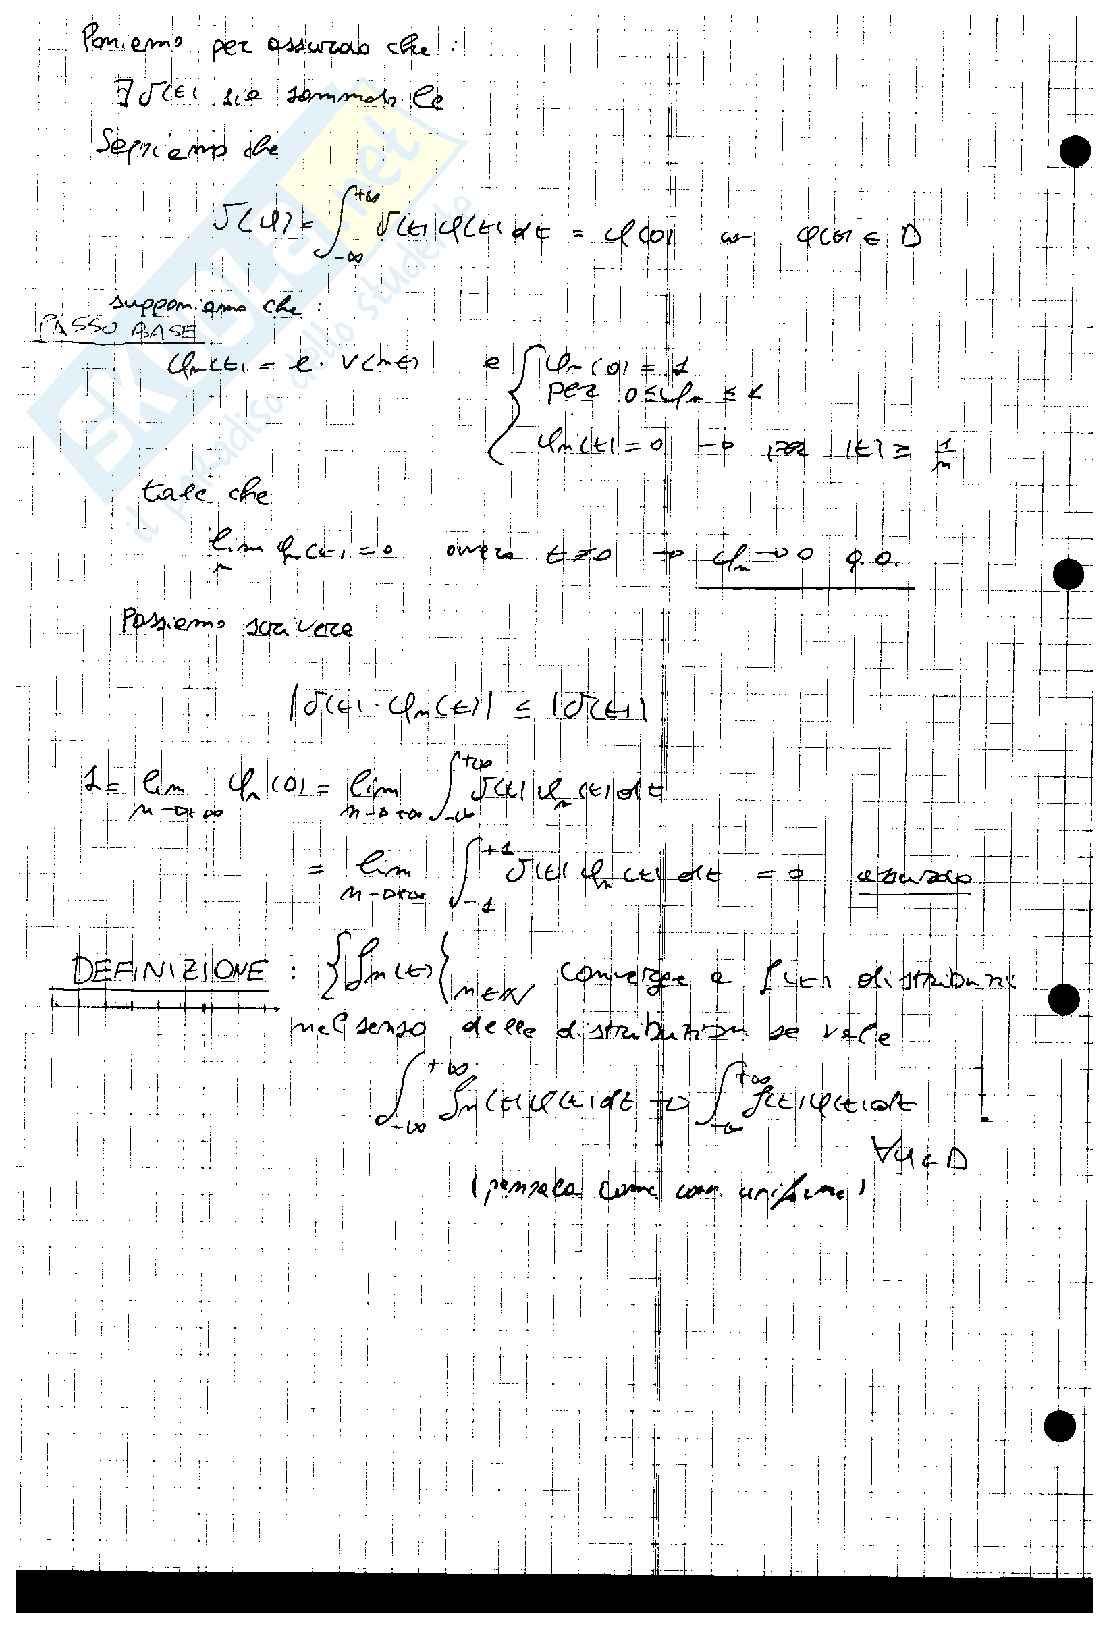 Poniamo per assurdo che :
∃ δ(t) sia sommabile
Sappiamo che
δ(φ) = ∫_{-∞}^{+∞} δ(t) φ(t) dt = φ(0) con φ(t) ∈ D
supponiamo che :
PASSO BASE
φₙ(t) = e · v(nt) e { φₙ(0) = 1
per 0 ≤ φₙ ≤ 1
φₙ(t) = 0 → per |t| ≥ 1/n
tale che
lim_n φₙ(t) = 0 ovvero t ≠ 0 → φₙ → 0 q.o.
Possiamo scrivere
|δ(t) · φₙ(t)| ≤ |δ(t)|
1 = lim_{n→+∞} φₙ(0) = lim_{n→+∞} ∫_{-∞}^{+∞} δ(t) φₙ(t) dt
= lim_{n→+∞} ∫_{-1}^{+1} δ(t) φₙ(t) dt = 0 assurdo
DEFINIZIONE : {fₙ(t)}_{n∈N} converge a f(t) distribuz
nel senso delle distribuzioni se vale
∫_{-∞}^{+∞} fₙ(t) φ(t) dt → ∫_{-∞}^{+∞} f(t) φ(t) dt
∀φ ∈ D
(pensala come conv. uniforme)
SKUOLA.net
il paradiso dello studente